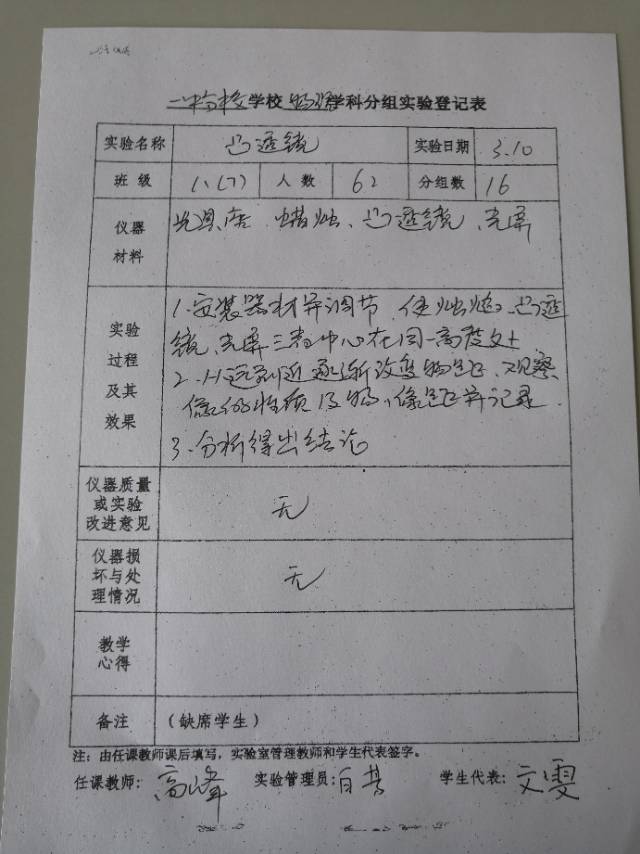 学校 物理学科分组实验登记表
实验名称 凸透镜 实验日期 3.10
班 级 八(7) 人 数 62 分组数 16
仪器
材料
光具座 蜡烛、凸透镜、光屏
实验
过程
及其
效果
1.安装器材并调节,使烛焰、凸透
镜、光屏三者中心在同一高度上
2.从远到近逐渐改变物距,观察
像的性质及物、像距并记录.
3.分析得出结论
仪器质量
或实验
改进意见
无
仪器损
坏与处
理情况
无
教学
心得
备注 (缺席学生)
注:由任课教师课后填写,实验室管理教师和学生代表签字。
任课教师:高峰 实验管理员: 学生代表:文雯